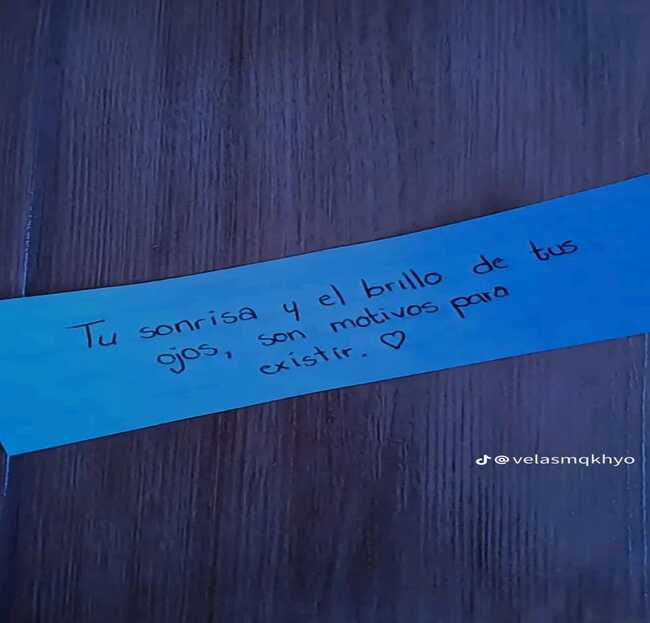 Tu sonrisa y el brillo de tus
ojos, son motivos para
existir. ♡
@velasmqkhyo